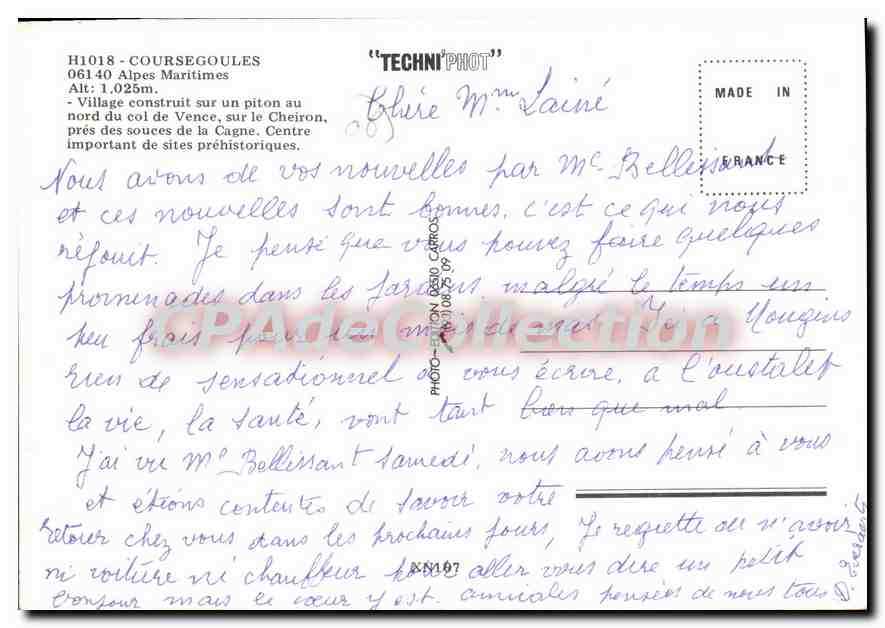 H1018 - COURSEGOULES
06140 Alpes Maritimes
Alt: 1.025m.
- Village construit sur un piton au
nord du col de Vence, sur le Cheiron,
prés des souces de la Cagne. Centre
important de sites préhistoriques.
"TECHNI'PHOT"
MADE IN
FRANCE
Chère Mme Lainé
Nous avons de vos nouvelles par Me Bellissant
et ces nouvelles sont bonnes, c'est ce qui nous
réjouit. Je pense que vous pouvez faire quelques
promenades dans les jardins malgré le temps un
peu frais pour un mois de mai. Ici à Mougins
rien de sensationnel à vous écrire, à l'oustalet
la vie, la santé, vont tant bien que mal.
J'ai vu Me Bellissant samedi, nous avons pensé à vous
et étions contentes de savoir votre
retour chez vous dans les prochains jours, Je regrette de n'avoir
ni voiture ni chauffeur pour aller vous dire un petit
bonjour mais le cœur y est. amicales pensées de nous tous
D.
PHOTO-EDITION 06510 CARROS
(93) 08 75 09
XN107
CPAdeCollection